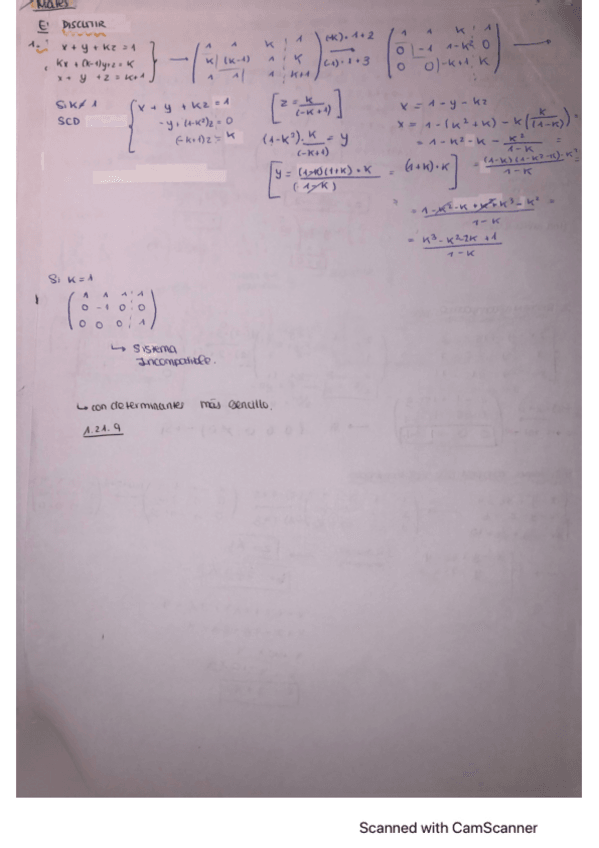 Mates
E: DISCUTIR
1. x + y + kz = 1
kx + (k-1)y + z = k
x + y + z = k+1
→ ( 1 1 k | 1
k (k-1) 1 | k
1 1 1 | k+1 )
(-k)·1+2
(-1)·1+3
( 1 1 k 1
0 -1 1-k² 0
0 0 -k+1 k ) →
Si k≠1
SCD
{ x + y + kz = 1
-y + (1-k²)z = 0
(-k+1)z = k
[ z = k/(-k+1) ]
(1-k²)· k/(-k+1) = y
[ y = (1-k)(1+k)·k/(1-k) = (1+k)·k ]
x = 1 - y - kz
x = 1 - (k²+k) - k(k/(1-k)) =
= 1 - k² - k - k²/(1-k) =
= (1-k)(1-k²-k)-k²/1-k
=
1-k
= k³-k²-2k+1/1-k
Si k=1
( 1 1 1 1
0 -1 0 0
0 0 0 1 )
↳ Sistema
Incompatible.
↳ con determinantes más sencillo.
1.21.9
Scanned with CamScanner